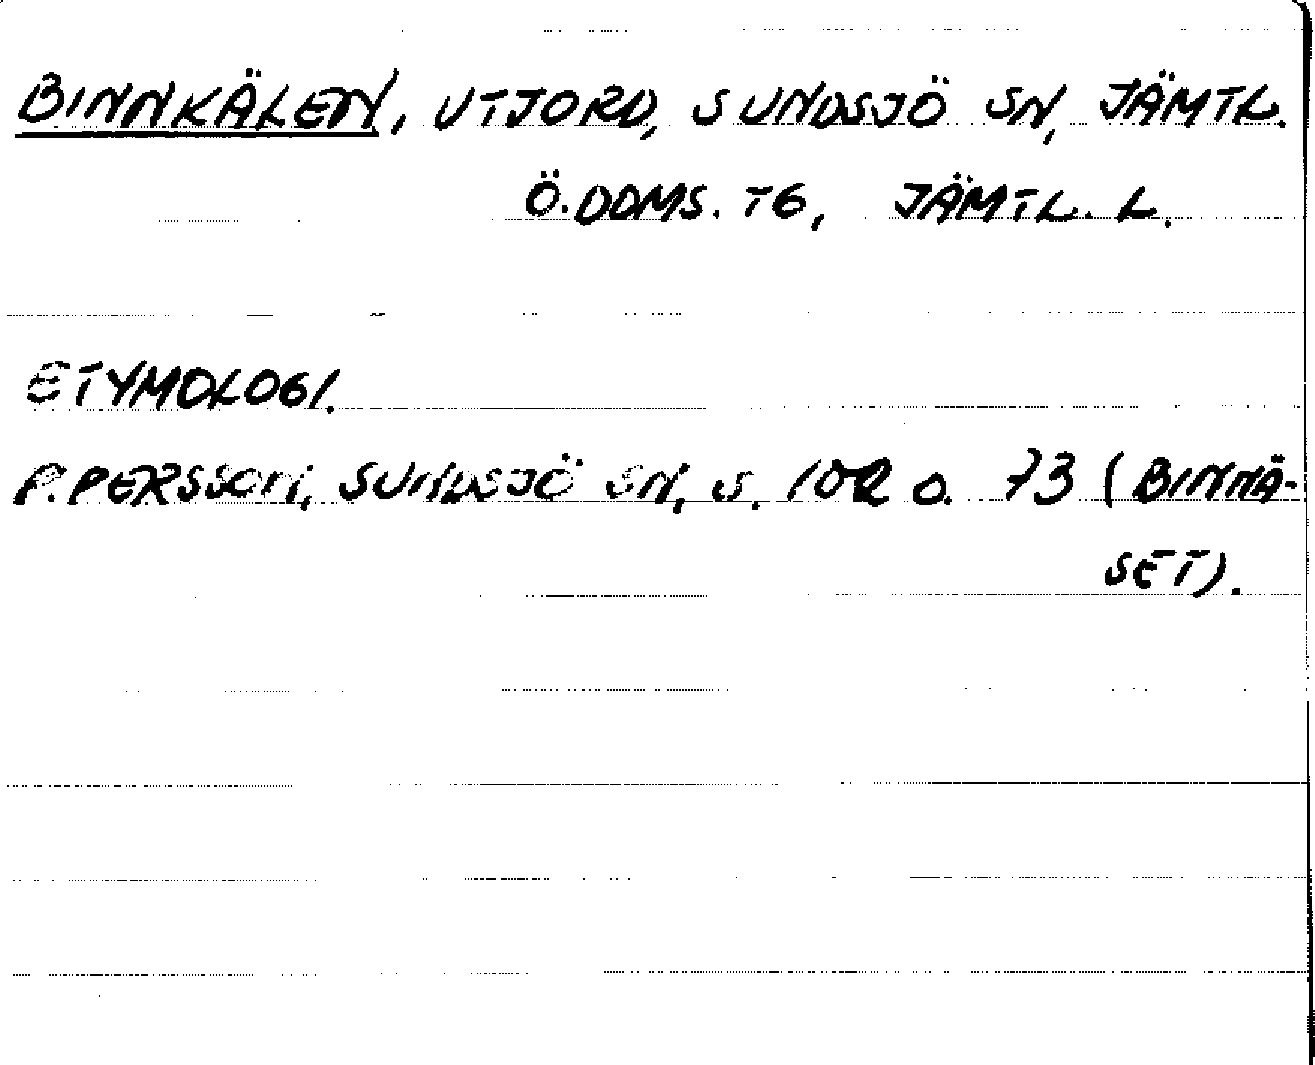 BINNKÄLEN, UTJORD, SUNDSJÖ SN, JÄMTL.
Ö. DOMS. TG, JÄMTL. L.
ETYMOLOGI.
P. PERSSON, SUNDSJÖ SN, S. 102 O. 73 (BINNÄ-
SET).